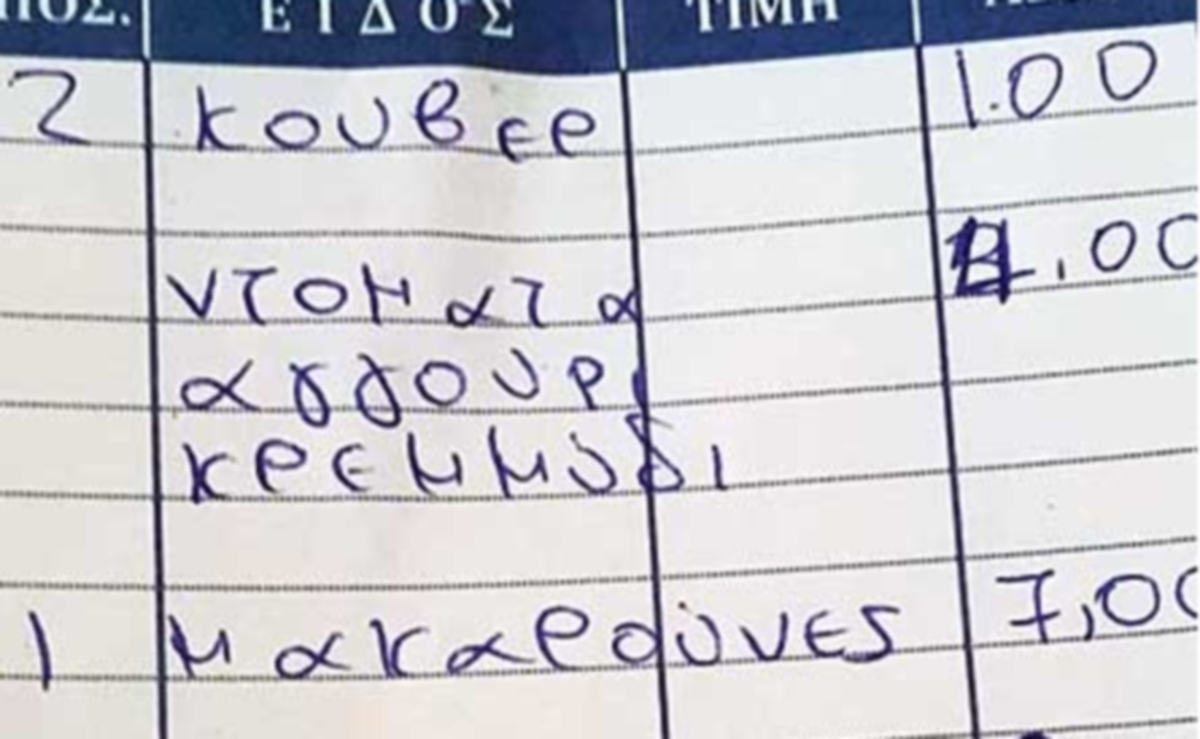 ΠΟΣ. ΕΙΔΟΣ ΤΙΜΗ
2 κουβερ 1.00
ντοματα 4.00
αγγουρι
κρεμμύδι
1 μακαρούνες 7,00